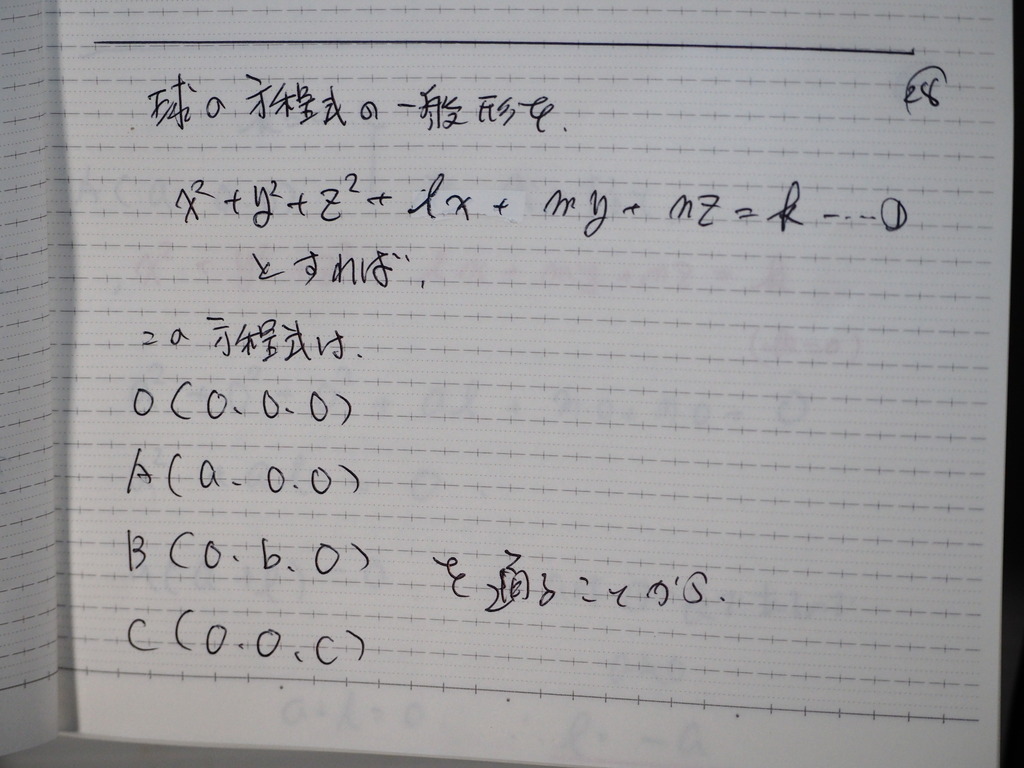 球の方程式の一般形を、
x²+y²+z²+lx+my+nz=k ----①
とすれば、
この方程式は、
O(0、0、0)
A(a、0、0)
B(0、b、0)
を通ることから、
C(0、0、c)